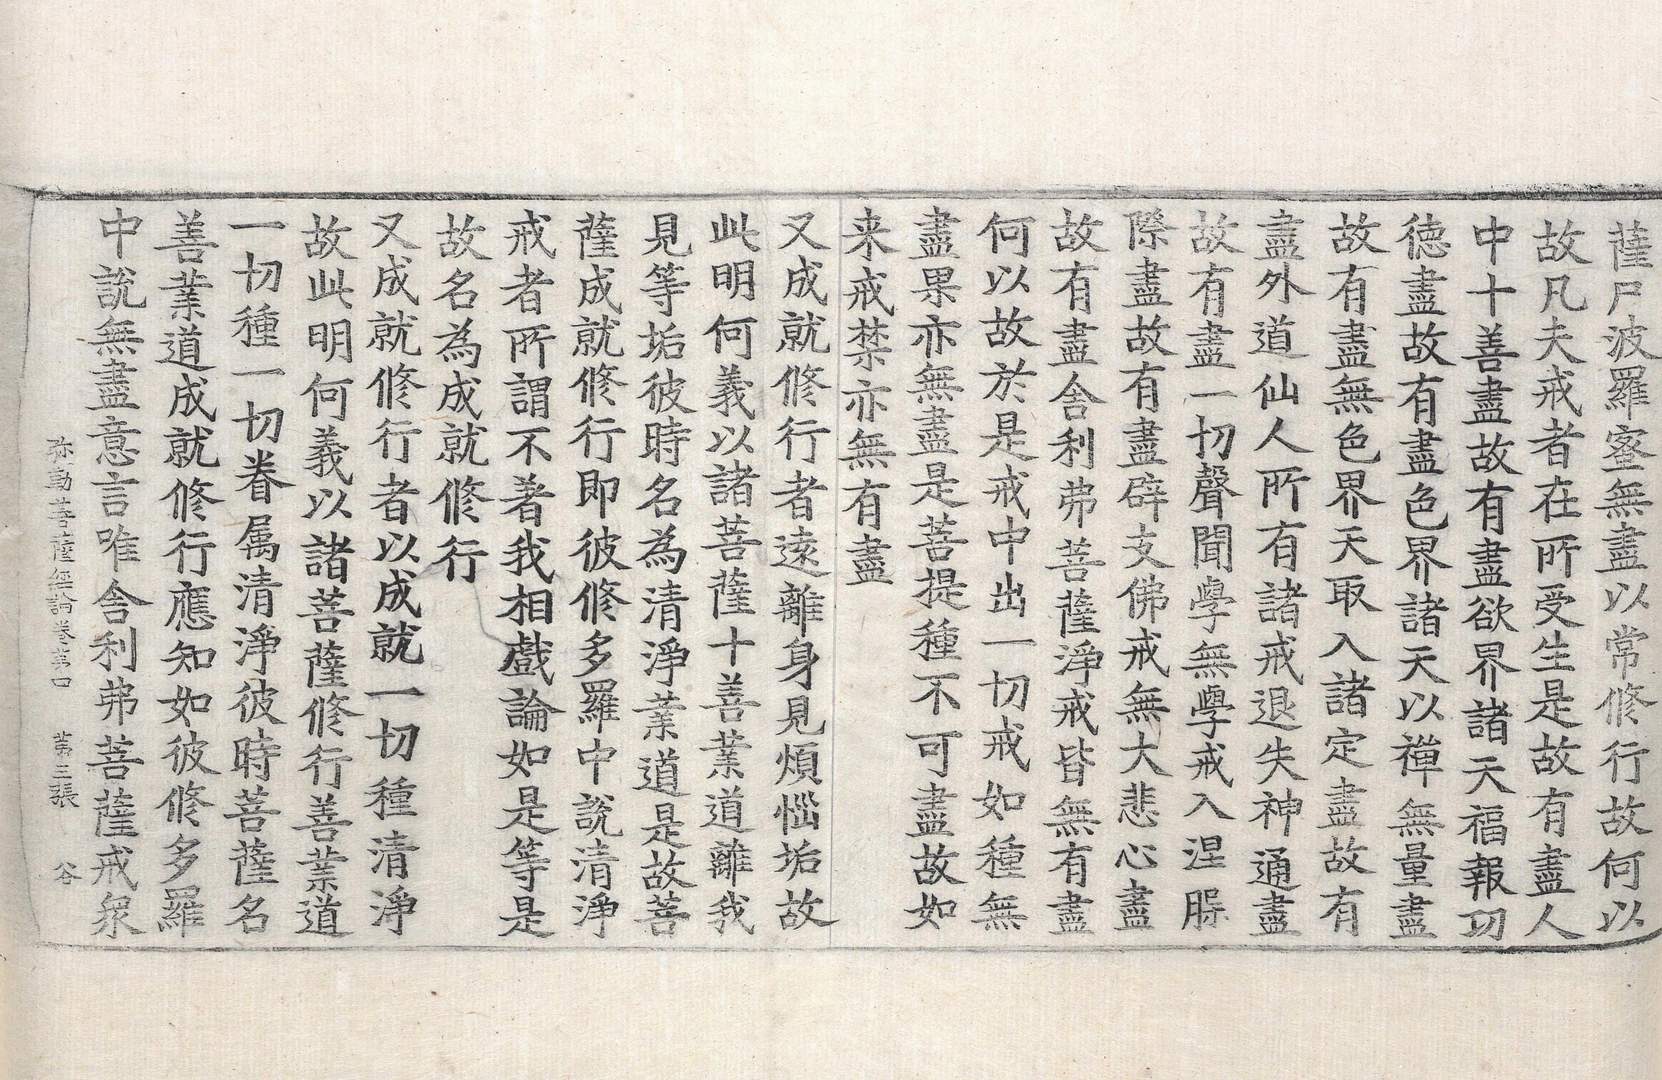 薩尸波羅蜜無盡以常修行故何以
故凡夫戒者在所受生是故有盡人
中十善盡故有盡欲界諸天福報功
德盡故有盡色界諸天以禪無量盡
故有盡無色界天取入諸定盡故有
盡外道仙人所有諸戒退失神通盡
故有盡一切聲聞學無學戒入涅槃
際盡故有盡辟支佛戒無大悲心盡
故有盡舍利弗菩薩淨戒皆無有盡
何以故於是戒中出一切戒如種無
盡果亦無盡是菩提種不可盡故如
来戒禁亦無有盡
又成就修行者遠離身見煩惱垢故
此明何義以諸菩薩十善業道離我
見等垢彼時名為清淨業道是故菩
薩成就修行即彼修多羅中說清淨
戒者所謂不著我相戲論如是等是
故名為成就修行
又成就修行者以成就一切種清淨
故此明何義以諸菩薩修行善業道
一切種一切眷属清淨彼時菩薩名
善業道成就修行應知如彼修多羅
中說無盡意言唯舍利弗菩薩戒衆
弥勒菩薩經論卷第口 第三張 谷